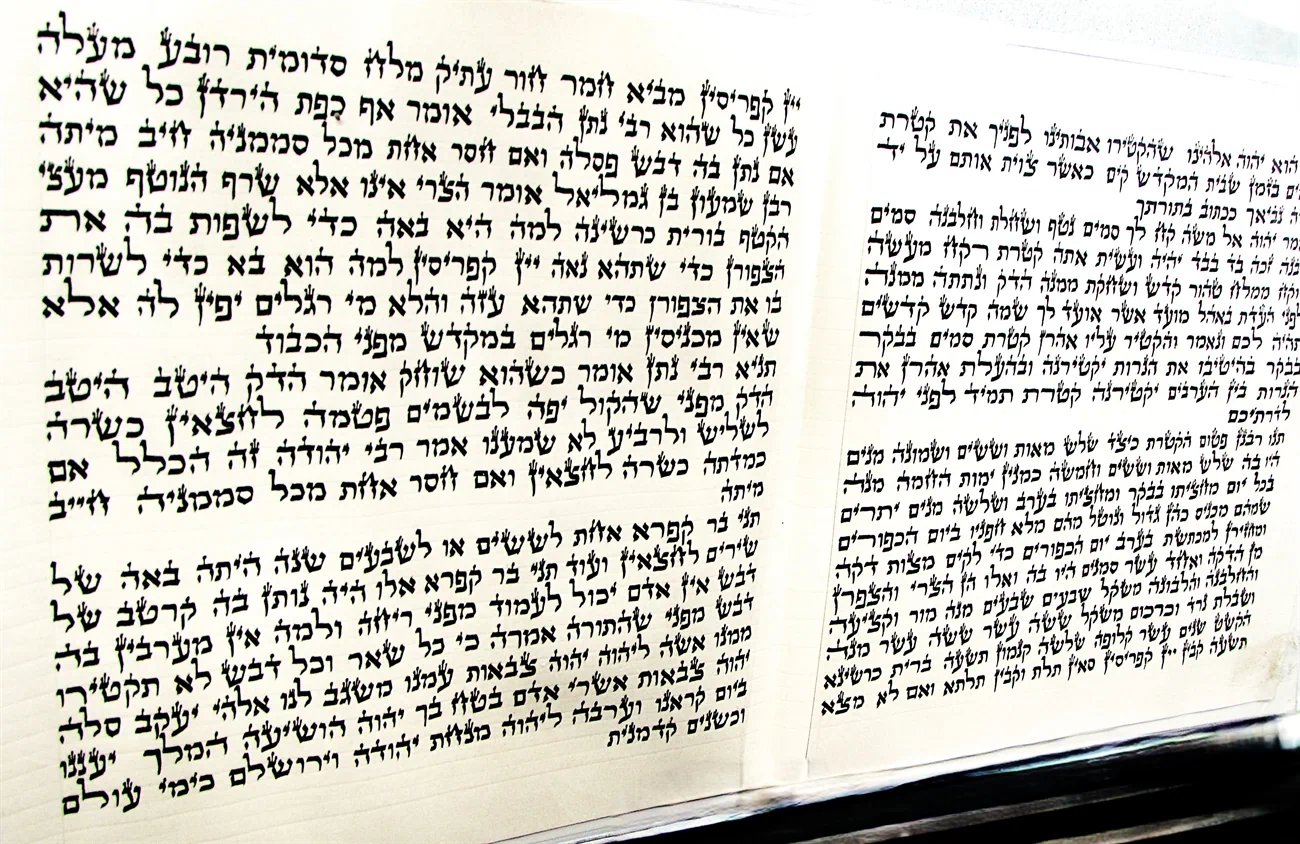 הוא יהוה אלהינו שהקטירו אבותינו לפניך את קטרת
בזמן שבית המקדש קים כאשר צוית אותם על יד
נביאך ככתוב בתורתך
יהוה אל משה קח לך סמים נטף ושחלת וחלבנה סמים
זכה בד בבד יהיה ועשית אתה קטרת רקח מעשה
רוקח ממלח טהור קדש ושחקת ממנה הדק ונתתה ממנה
לפני העדת באהל מועד אשר אועד לך שמה קדש קדשים
תהיה לכם ונאמר והקטיר עליו אהרן קטרת סמים בבקר
בבקר בהיטיבו את הנרות יקטירנה ובהעלת אהרן את
הנרות בין הערבים יקטירנה קטרת תמיד לפני יהוה
לדרתיכם
תנו רבנן פטום הקטרת כיצד שלש מאות וששים ושמונה מנים
היו בה שלש מאות וששים וחמשה כמנין ימות החמה מנה
בכל יום מחציתו בבקר ומחציתו בערב ושלשה מנים יתרים
שמהם מכניס כהן גדול ונוטל מהם מלא חפניו ביום הכפורים
ומחזירן למכתשת בערב יום הכפורים כדי לקים מצות דקה
מן הדקה ואחד עשר סמנים היו בה ואלו הן הצרי והצפרן
והחלבנה והלבונה משקל שבעים שבעים מנה מור וקציעה
ושבלת נרד וכרכום משקל ששה עשר ששה עשר מנה
הקשט שנים עשר קלופה שלשה קנמון תשעה ברית כרשינא
תשעה קבין יין קפריסין סאין תלת וקבין תלתא ואם לא מצא
יין קפריסין מביא חמר חור עתיק מלח סדומית רובע מעלה
עשן כל שהוא רבי נתן הבבלי אומר אף כפת הירדן כל שהיא
אם נתן בה דבש פסלה ואם חסר אחת מכל סממניה חיב מיתה
רבן שמעון בן גמליאל אומר הצרי אינו אלא שרף הנוטף מעצי
הקטף בורית כרשינה למה היא באה כדי לשפות בה את
הצפורן כדי שתהא נאה יין קפריסין למה הוא בא כדי לשרות
בו את הצפורן כדי שתהא עזה והלא מי רגלים יפין לה אלא
שאין מכניסין מי רגלים במקדש מפני הכבוד
תניא רבי נתן אומר כשהוא שוחק אומר הדק היטב היטב
הדק מפני שהקול יפה לבשמים פטמה לחצאין כשרה
לשליש ולרביע לא שמענו אמר רבי יהודה זה הכלל אם
כמדתה כשרה לחצאין ואם חסר אחת מכל סממניה חייב
מיתה
תני בר קפרא אחת לששים או לשבעים שנה היתה באה של
שירים לחצאין ועוד תני בר קפרא אלו היה נותן בה קרטב של
דבש אין אדם יכול לעמוד מפני ריחה ולמה אין מערבין בה
דבש מפני שהתורה אמרה כי כל שאר וכל דבש לא תקטירו
ממנו אשה ליהוה יהוה צבאות עמנו משגב לנו אלהי יעקב סלה
יהוה צבאות אשרי אדם בטח בך יהוה הושיעה המלך יעננו
ביום קראנו וערבה ליהוה מנחת יהודה וירושלם כימי עולם
וכשנים קדמנית